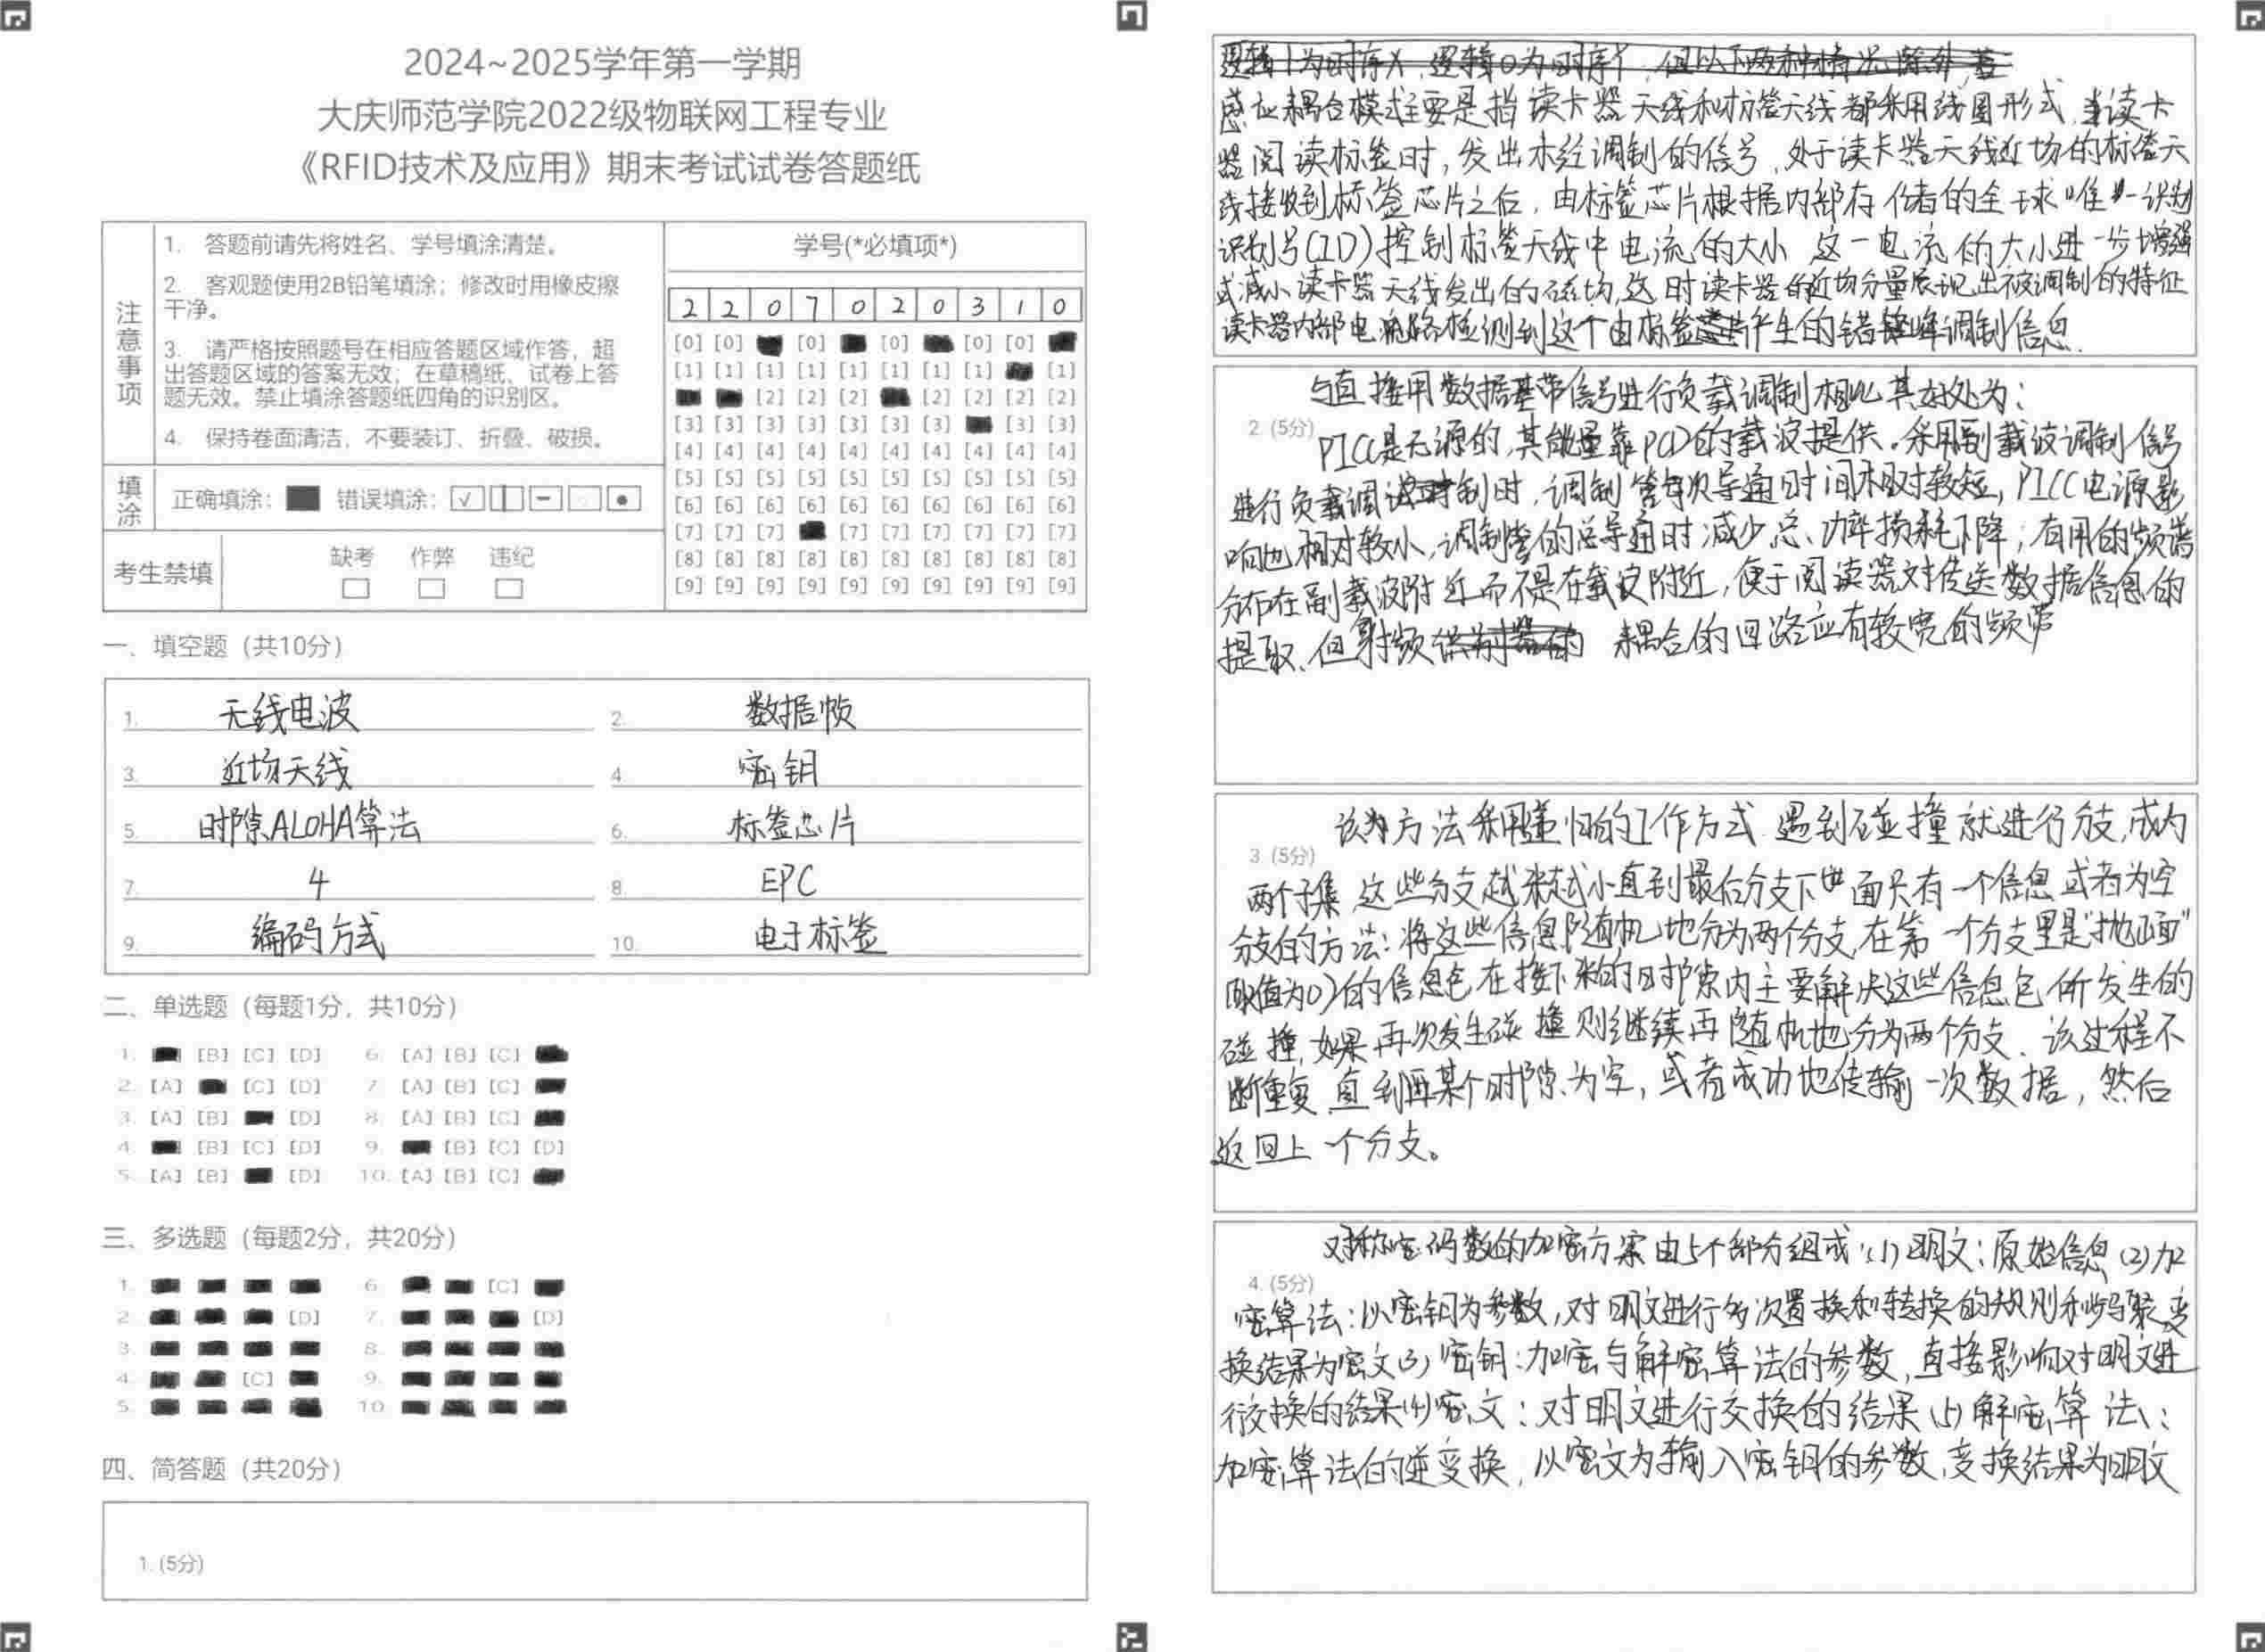 2024~2025学年第一学期
大庆师范学院2022级物联网工程专业
《RFID技术及应用》期末考试试卷答题纸
注意事项
1. 答题前请先将姓名、学号填涂清楚。
2. 客观题使用2B铅笔填涂；修改时用橡皮擦
干净。
3. 请严格按照题号在相应答题区域作答，超
出答题区域的答案无效；在草稿纸、试卷上答
题无效。禁止填涂答题纸四角的识别区。
4. 保持卷面清洁，不要装订、折叠、破损。
填涂
正确填涂： 错误填涂：
考生禁填
缺考 作弊 违纪
学号(*必填项*)
2 2 0 7 0 2 0 3 1 0
[0] [0] [0] [0] [0] [0]
[1] [1] [1] [1] [1] [1] [1] [1] [1]
[2] [2] [2] [2] [2] [2] [2]
[3] [3] [3] [3] [3] [3] [3] [3] [3]
[4] [4] [4] [4] [4] [4] [4] [4] [4] [4]
[5] [5] [5] [5] [5] [5] [5] [5] [5] [5]
[6] [6] [6] [6] [6] [6] [6] [6] [6] [6]
[7] [7] [7] [7] [7] [7] [7] [7] [7]
[8] [8] [8] [8] [8] [8] [8] [8] [8] [8]
[9] [9] [9] [9] [9] [9] [9] [9] [9] [9]
一、填空题（共10分）
1. 无线电波 2. 数据帧
3. 近场天线 4. 密钥
5. 时隙ALOHA算法 6. 标签芯片
7. 4 8. EPC
9. 编码方式 10. 电子标签
二、单选题（每题1分，共10分）
1. [B] [C] [D] 6. [A] [B] [C]
2. [A] [C] [D] 7. [A] [B] [C]
3. [A] [B] [D] 8. [A] [B] [C]
4. [B] [C] [D] 9. [B] [C] [D]
5. [A] [B] [D] 10. [A] [B] [C]
三、多选题（每题2分，共20分）
1. 6. [C]
2. [D] 7. [D]
3. 8.
4. [C] 9.
5. 10.
四、简答题（共20分）
1. (5分)
逻辑1为时序X，逻辑0为时序Y，但以下两种情况除外，若
感应耦合模式主要是指读卡器天线和标签天线都采用线圈形式，当读卡
器阅读标签时，发出未经调制的信号，处于读卡器天线近场的标签天
线接收到标签芯片之后，由标签芯片根据内部存储的全球唯一识别
识别号(ID)控制标签天线中电流的大小 这一电流的大小进一步增强
或减小读卡器天线发出的磁场,这时读卡器的近场分量展现出被调制的特征
读卡器内部电路检测到这个由标签产生的调制信息.
与直接用数据基带信号进行负载调制相比其好处为：
2. (5分)
PICC是无源的，其能量靠PCD的载波提供。采用副载波调制信号
进行负载调制时，调制管每次导通时间相对较短，PICC电源影
响也相对较小，调制管的总导通时减少总、功率损耗下降；有用的频谱
分布在副载波附近而不是在载波附近，便于阅读器对传送数据信息的
提取、但射频 耦合的回路应有较宽的频带
该方法采用递归的工作方式 遇到碰撞就进行分支，成为
3. (5分)
两个子集 这些分支越来越小直到最后分支下面只有一个信息或者为空
分支的方法：将这些信息随机地分为两个分支，在第一个分支里是"抛正面"
(取值为0)的信息包在接下来的时隙内主要解决这些信息包所发生的
碰撞，如果再次发生碰撞则继续再随机地分为两个分支．该过程不
断重复 直到再某个时隙为空，或者成功地传输一次数据，然后
返回上一个分支。
对称密码数的加密方案由5个部分组成:(1)明文：原始信息(2)加
4. (5分)
密算法：以密钥为参数，对明文进行多次置换和转换的规则和步骤变
换结果为密文(3)密钥：加密与解密算法的参数，直接影响对明文进
行交换的结果(4)密文：对明文进行交换的结果(5)解密算法：
加密算法的逆变换，以密文为输入密钥的参数，变换结果为明文